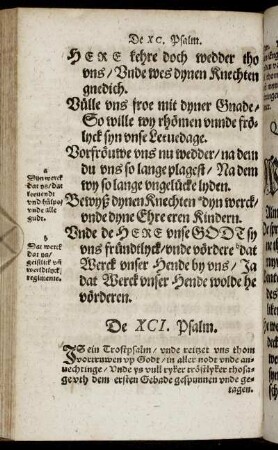 De XC. Psalm.
HERE kehre doch wedder tho
vns / Vnde wes dynen Knechten
gnedich.
Vülle vns froe mit dyner Gnade /
So wille wy rhömen vnnde frö-
lyck syn vnse Leuedage.
Vorfröuwe vns nu wedder / na dem
du vns so lange plagest / Na dem
wy so lange vngelücke lyden.
Bewyß dynen Knechten a dyn werck /
vnde dyne Ehre eren Kindern.
Vnde de HERE vnse GODT sy
vns fründtlyck / vnde vördere b dat
Werck vnser Hende by vns / Ja
dat Werck vnser Hende wolde he
vörderen.
a
Dyn werck
dat ys / dat
vnd hülpe /
vnde alle
gudt.
b
Dat werck
dat ys /
geistlick vñ
werldtlyck
regimente.
De XCI. Psalm.
IS ein Trostpsalm / vnde reitzet vns thom
vortruwen vp Godt / in aller nodt vnde an-
uechtinge / Vnde ys vull ryker tröstlyker thosa-
ge vth dem ersten Gebade gespunnen vnde ge-
tagen.